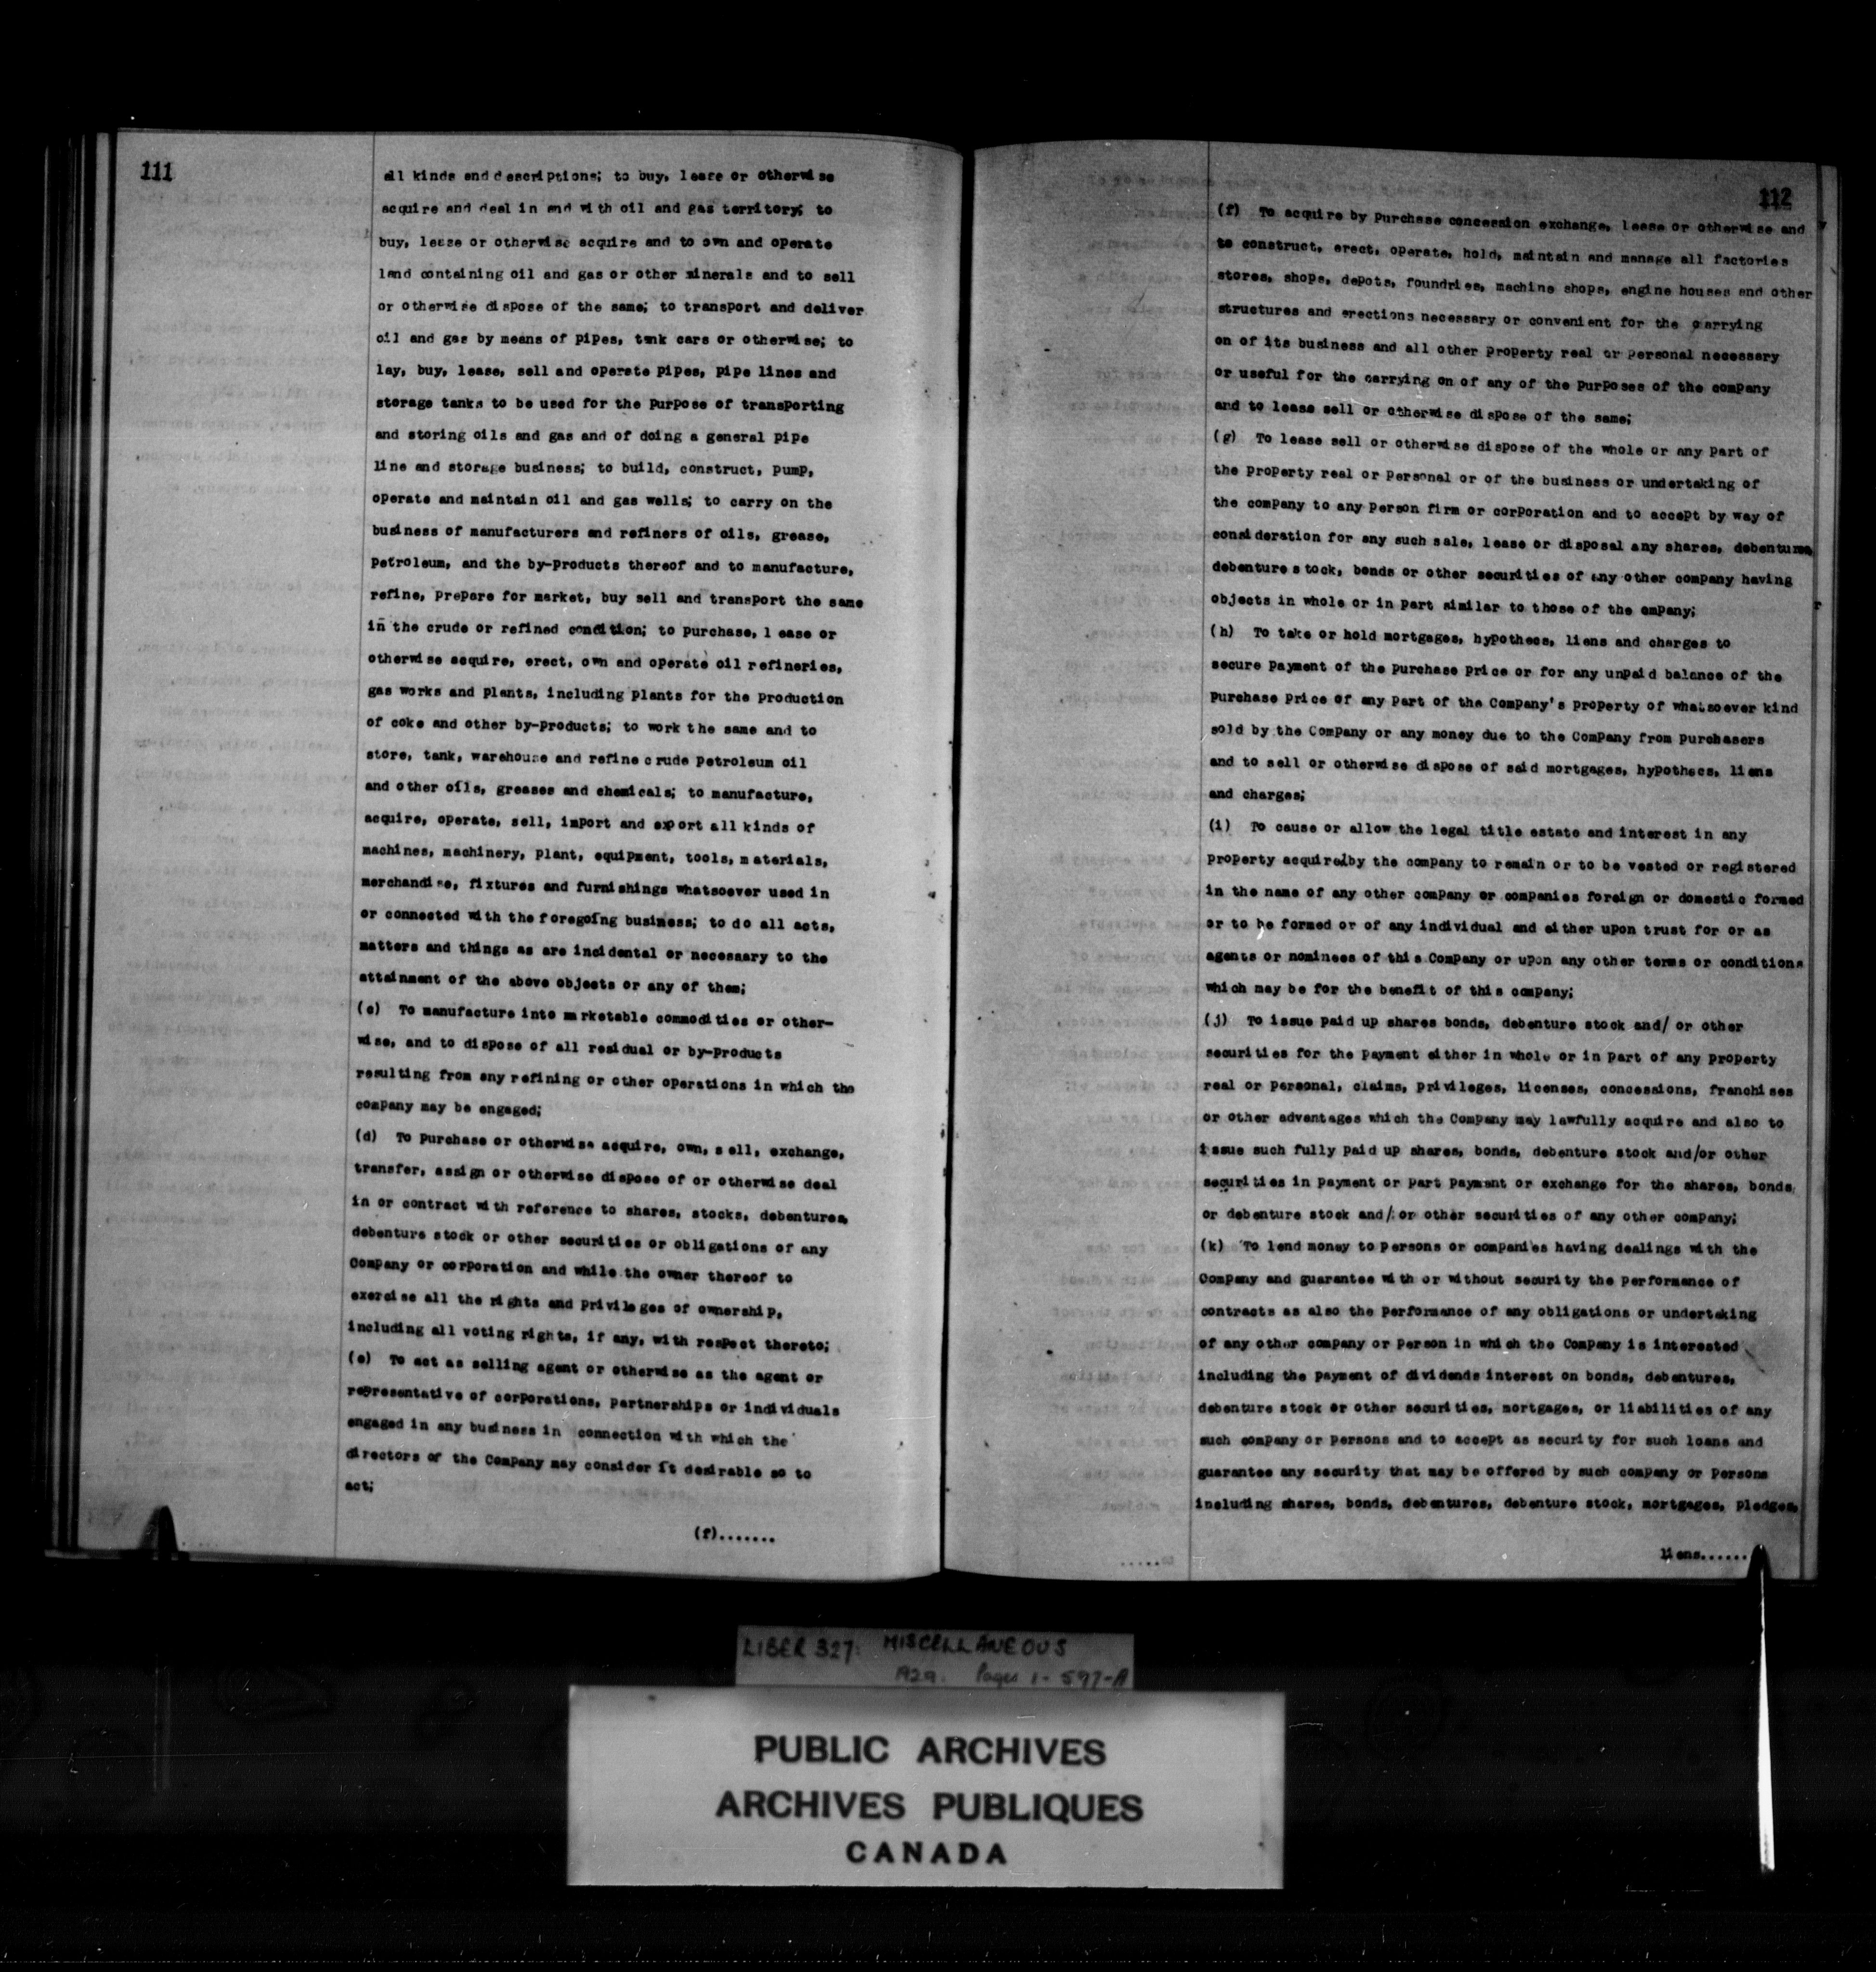 111
all kinds and descriptions; to buy, lease or otherwise
acquire and deal in and with oil and gas territory; to
buy, lease or otherwise acquire and to own and operate
land containing oil and gas or other minerals and to sell
or otherwise dispose of the same; to transport and deliver
oil and gas by means of pipes, tank cars or otherwise; to
lay, buy, lease, sell and operate pipes, pipe lines and
storage tanks to be used for the purpose of transporting
and storing oils and gas and of doing a general pipe
line and storage business; to build, construct, pump,
operate and maintain oil and gas wells; to carry on the
business of manufacturers and refiners of oils, grease,
petroleum, and the by-products thereof and to manufacture,
refine, prepare for market, buy sell and transport the same
in the crude or refined condition; to purchase, l ease or
otherwise acquire, erect, own and operate oil refineries,
gas works and plants, including plants for the production
of coke and other by-products; to work the same and to
store, tank, warehouse and refine crude petroleum oil
and other oils, greases and chemicals; to manufacture,
acquire, operate, sell, import and export all kinds of
machines, machinery, plant, equipment, tools, materials,
merchandise, fixtures and furnishings whatsoever used in
or connected with the foregoing business; to do all acts,
matters and things as are incidental or necessary to the
attainment of the above objects or any of them;
(c) To manufacture into marketable commodities or other-
wise, and to dispose of all residual or by-products
resulting from any refining or other operations in which the
company may be engaged;
(d) To purchase or otherwise acquire, own, sell, exchange,
transfer, assign or otherwise dispose of or otherwise deal
in or contract with reference to shares, stocks, debentures,
debenture stock or other securities or obligations of any
Company or corporation and while the owner thereof to
exercise all the rights and privileges of ownership,
including all voting rights, if any, with respect thereto;
(e) To act as selling agent or otherwise as the agent or
representative of corporations, partnerships or individuals
engaged in any business in connection with which the
directors of the Company may consider it desirable so to
act;
(f).......
112
(f) To acquire by purchase concession exchange, lease or otherwise and
to construct, erect, operate, hold, maintain and manage all factories
stores, shops, depots, foundries, machine shops, engine houses and other
structures and erections necessary or convenient for the carrying
on of its business and all other property real or personal necessary
or useful for the carrying on of any of the purposes of the company
and to lease sell or otherwise dispose of the same;
(g) To lease sell or otherwise dispose of the whole or any part of
the property real or personal or of the business or undertaking of
the company to any person firm or corporation and to accept by way of
consideration for any such sale, lease or disposal any shares, debentures,
debenture stock, bonds or other securities of any other company having
objects in whole or in part similar to those of the ompany;
(h) To take or hold mortgages, hypothecs, liens and charges to
secure payment of the purchase price or for any unpaid balance of the
purchase price of any part of the Company's property of whatsoever kind
sold by the Company or any money due to the Company from purchasers
and to sell or otherwise dispose of said mortgages, hypothecs, liens
and charges;
(i) To cause or allow the legal title estate and interest in any
property acquired by the company to remain or to be vested or registered
in the name of any other company or companies foreign or domestic formed
or to be formed or of any individual and either upon trust for or as
agents or nominees of this Company or upon any other terms or conditions
which may be for the benefit of this company;
(j) To issue paid up shares bonds, debenture stock and/ or other
securities for the payment either in whole or in part of any property
real or personal, claims, privileges, licenses, concessions, franchises
or other advantages which the Company may lawfully acquire and also to
issue such fully paid up shares, bonds, debenture stock and/or other
securities in payment or part payment or exchange for the shares, bonds,
or debenture stock and/or other securities of any other company;
(k) To lend money to persons or companies having dealings with the
Company and guarantee with or without security the performance of
contracts as also the performance of any obligations or undertaking
of any other company or person in which the Company is interested
including the payment of dividends interest on bonds, debentures,
debenture stock or other securities, mortgages, or liabilities of any
such company or persons and to accept as security for such loans and
guarantee any security that may be offered by such company or persons
including shares, bonds, debentures, debenture stock, mortgages, pledges,
liens......
LIBER 327: MISCELLANEOUS
1929. Pages 1-597-A
PUBLIC ARCHIVES
ARCHIVES PUBLIQUES
CANADA